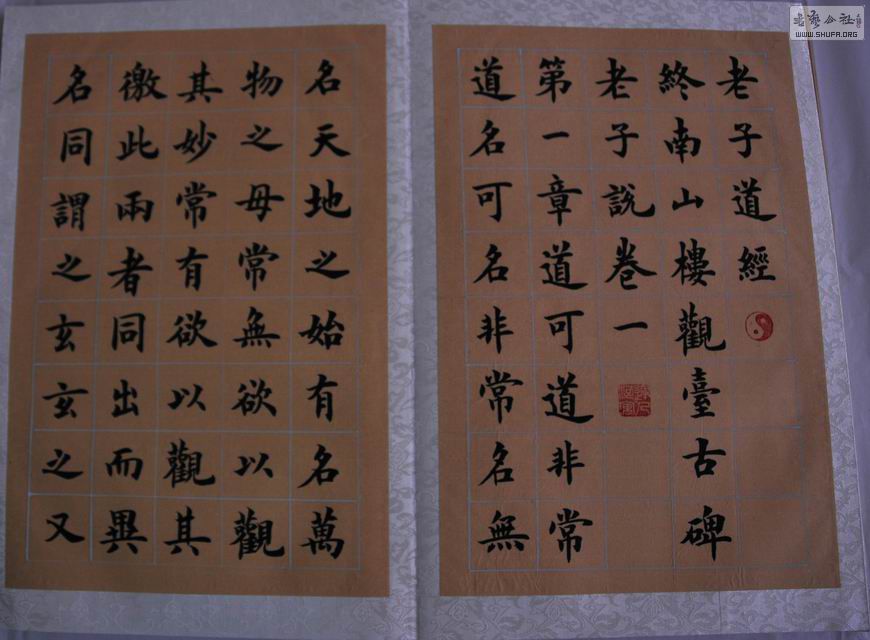 老子道經
終南山樓觀臺古碑
老子說卷一
第一章道可道非常
道名可名非常名無
名天地之始有名萬
物之母常無欲以觀
其妙常有欲以觀其
徼此兩者同出而異
名同謂之玄玄之又
WWW.SHUFA.ORG